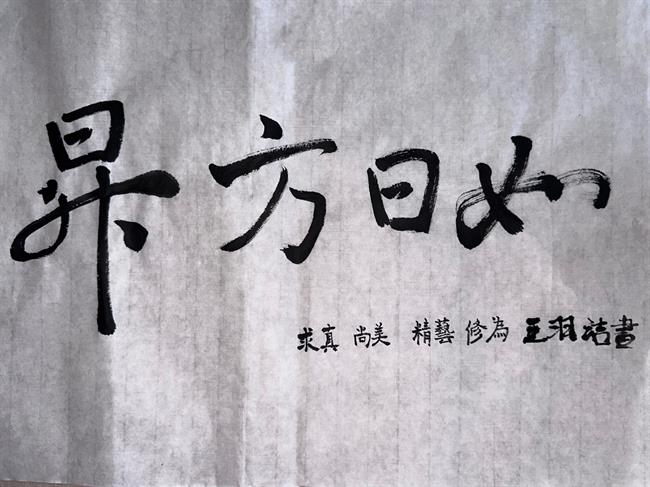 如日方昇
求真 尚美 精藝 修為 王羽洁書